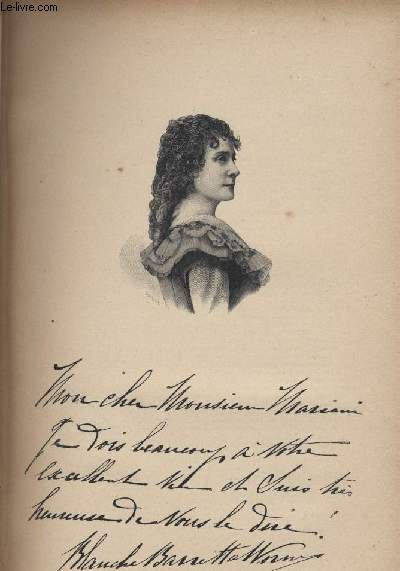 © Le-livre.com
Mon cher Monsieur Mariani
Je dois beaucoup à votre
excellent vin et suis très
heureuse de vous le dire!
Blanche Barretta Worms